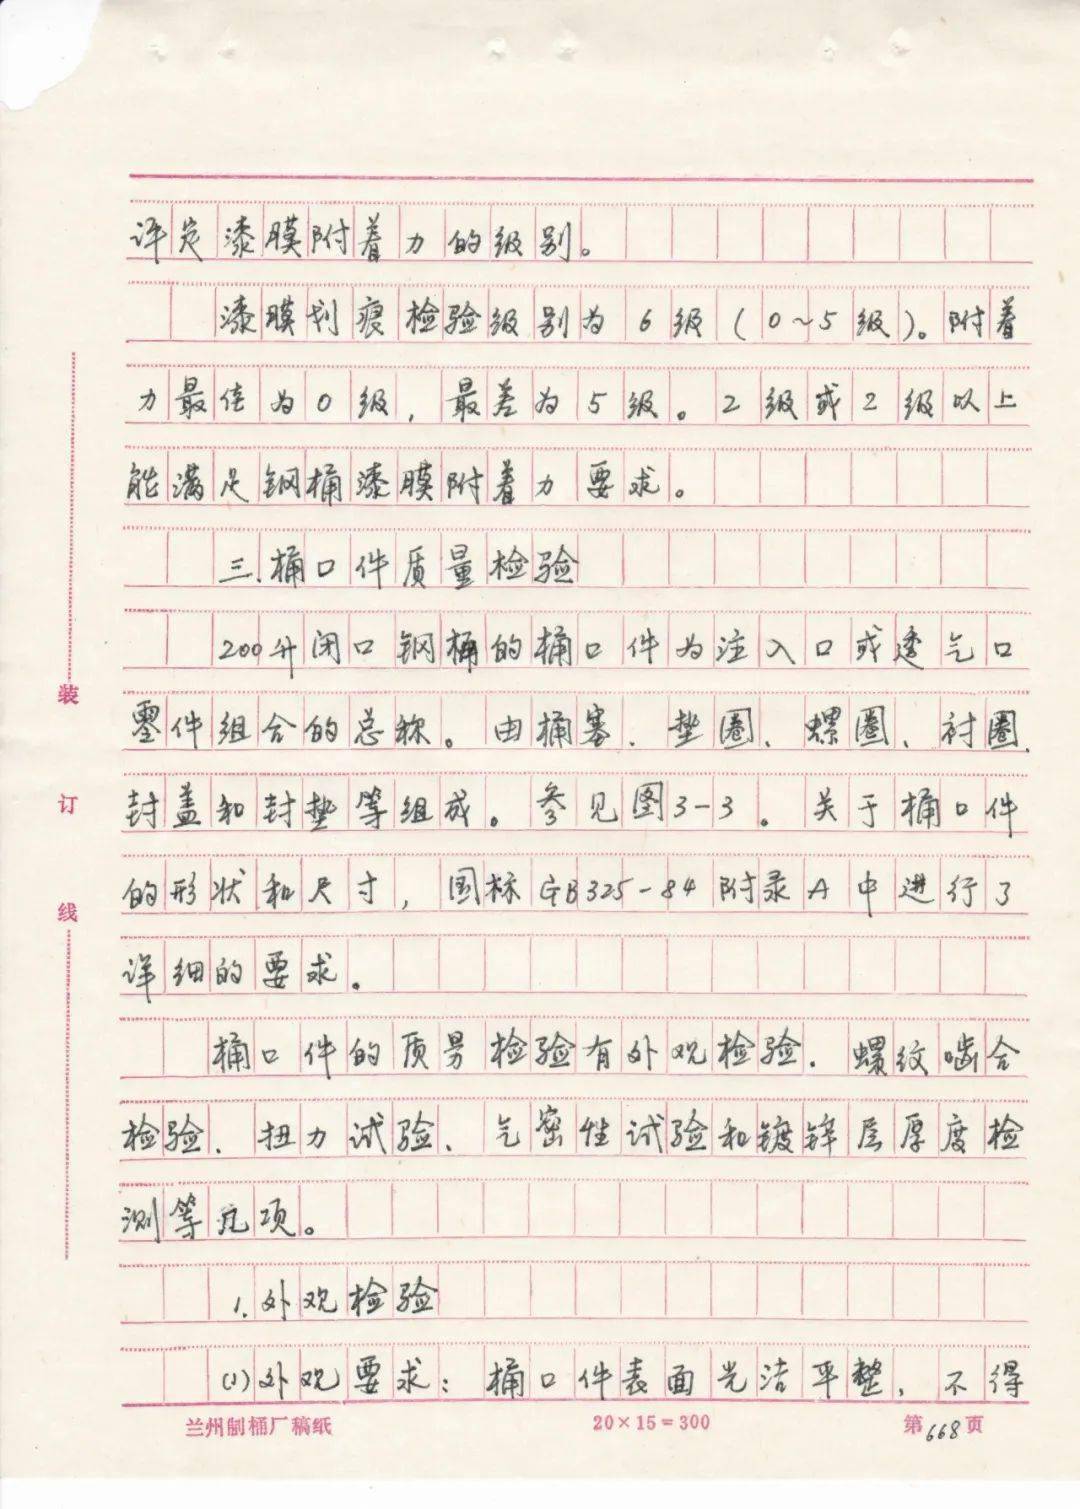 评定漆膜附着力的级别。
漆膜划痕检验级别为6级(0~5级)。附着
力最佳为0级,最差为5级。2级或2级以上
能满足钢桶漆膜附着力要求。
三、桶口件质量检验
200升闭口钢桶的桶口件为注入口或透气口
零件组合的总称。由桶塞、垫圈、螺圈、衬圈、
封盖和封垫等组成。参见图3-3。关于桶口件
的形状和尺寸,国标GB325-84附录A中进行了
详细的要求。
桶口件的质量检验有外观检验、螺纹啮合
检验、扭力试验、气密性试验和镀锌层厚度检
测等几项。
1.外观检验
(1)外观要求:桶口件表面光洁平整,不得
装订线
兰州制桶厂稿纸 20×15=300 第668页